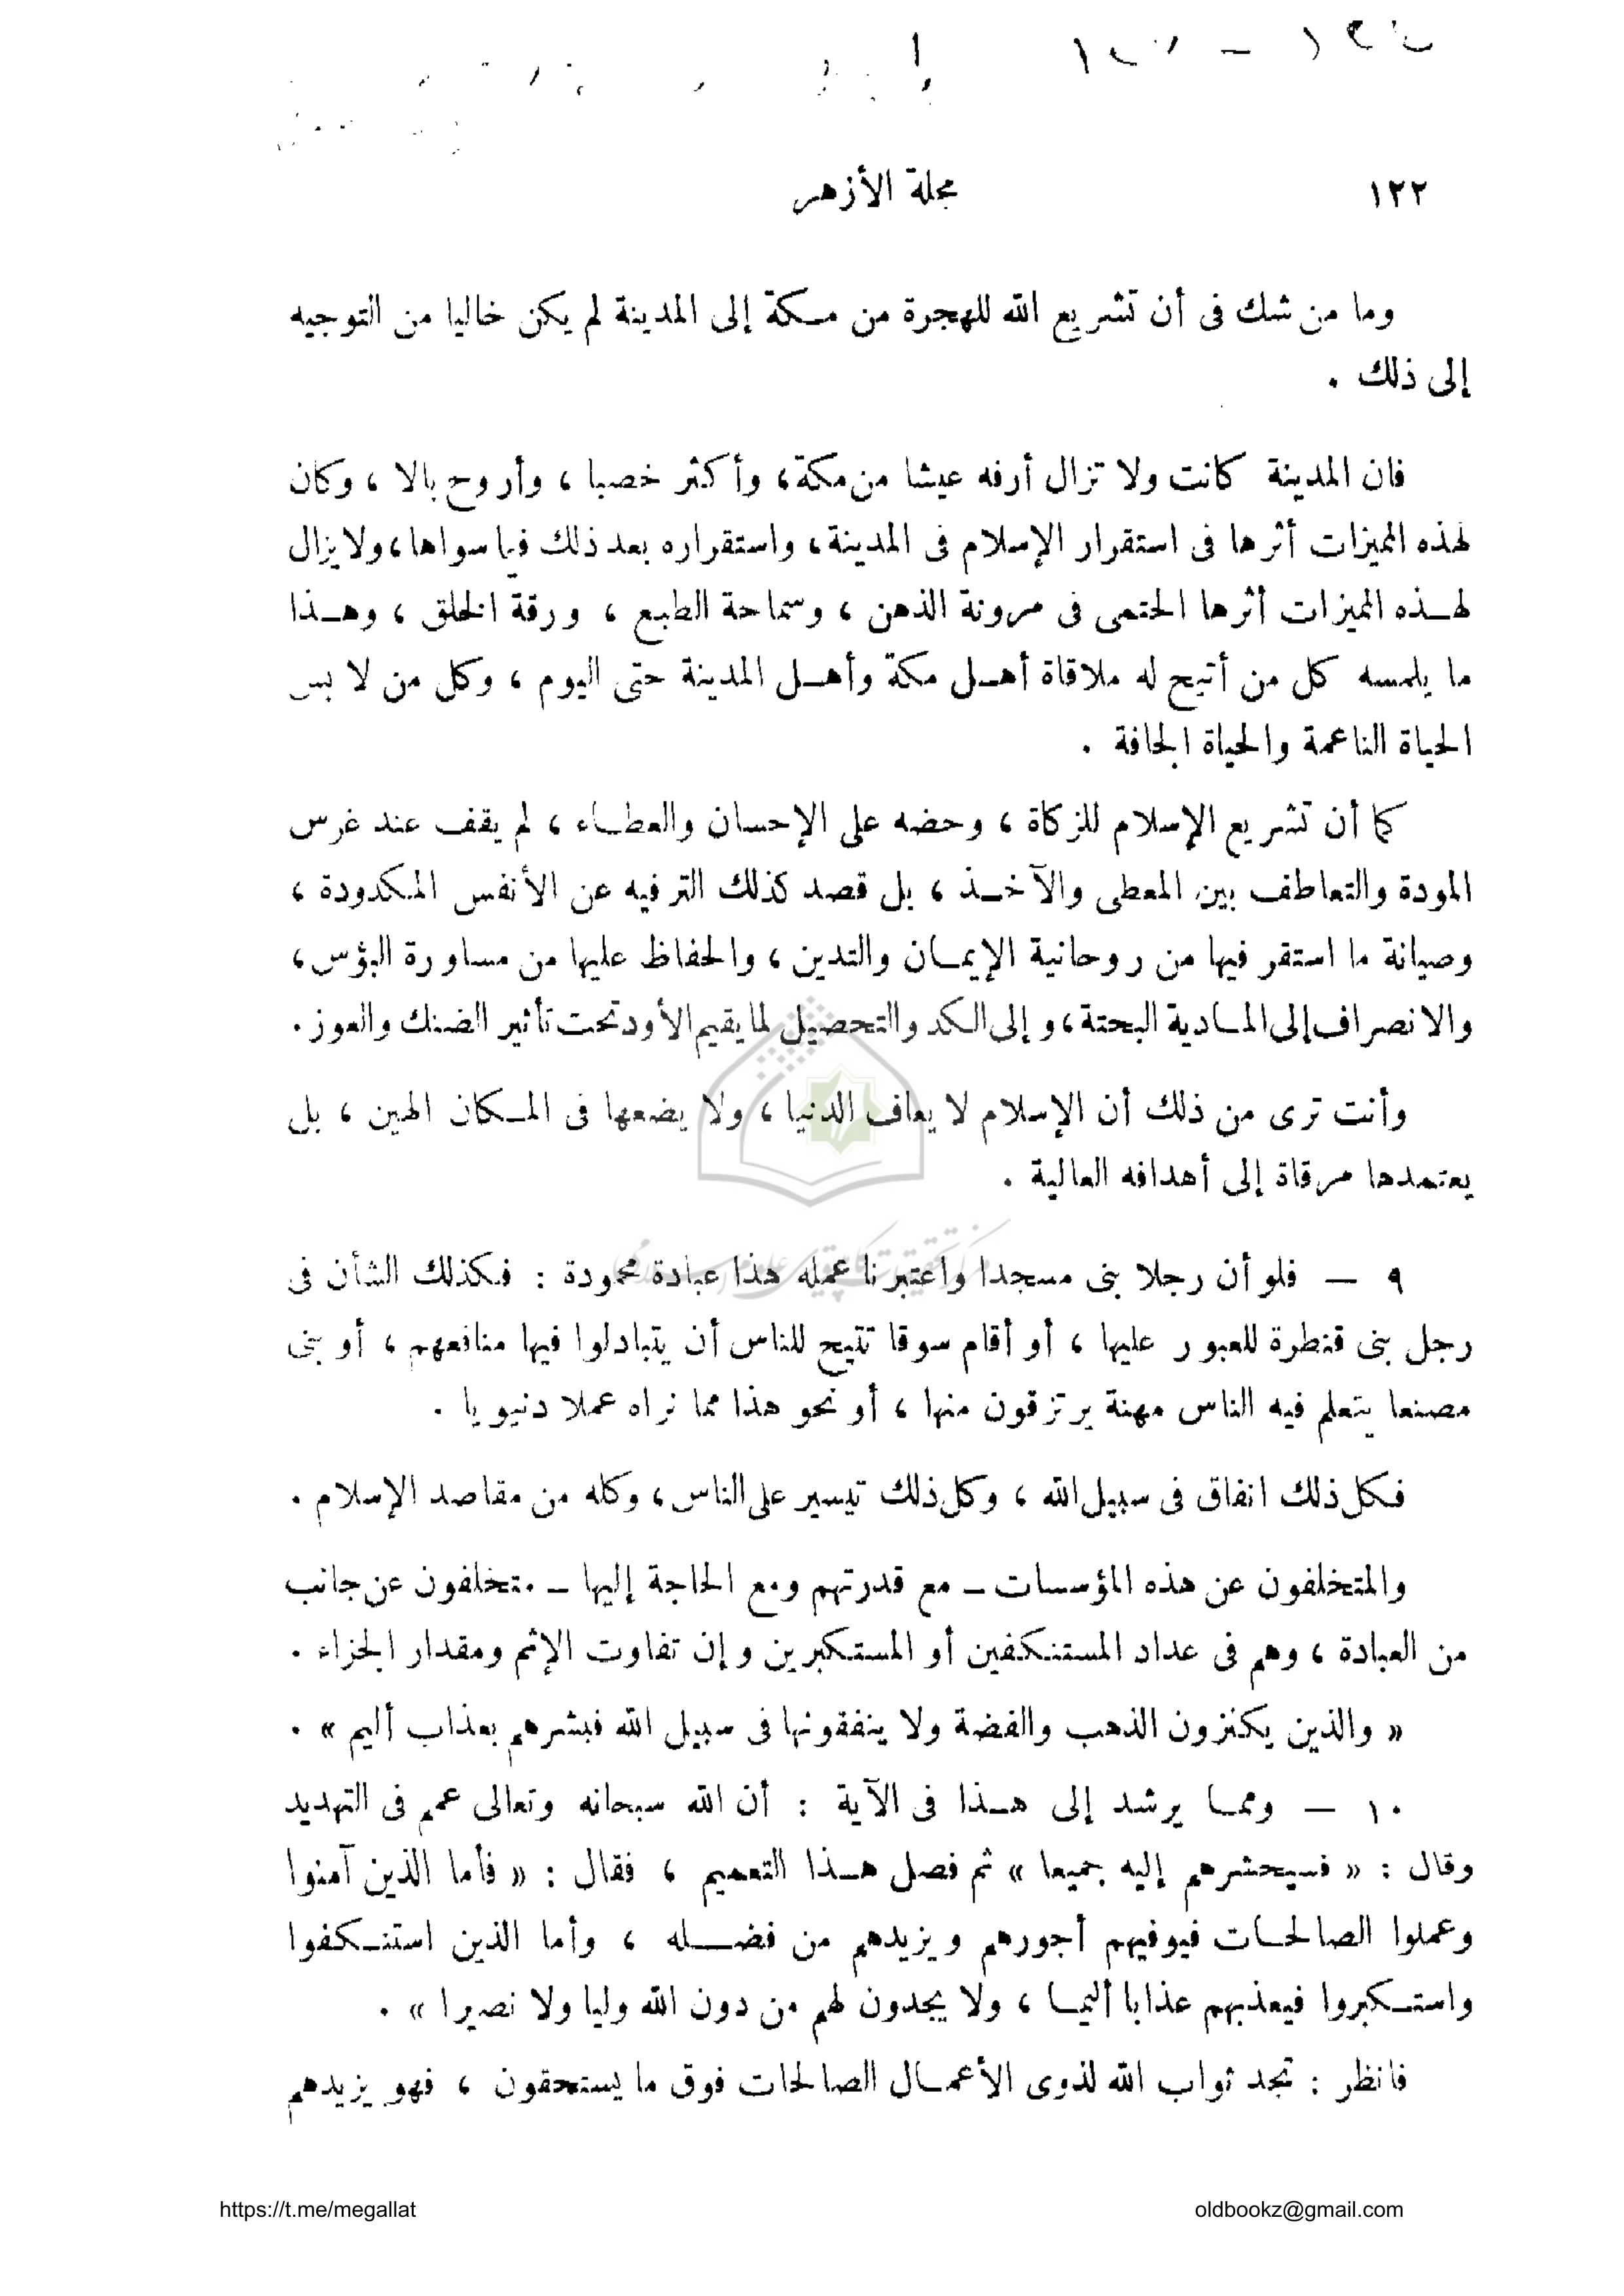 ١٢٢ مجلة الأزهر
وما من شك فى أن تشريع الله للهجرة من مكة إلى المدينة لم يكن خاليا من التوجيه
إلى ذلك .
فان المدينة كانت ولا تزال أرفه عيشا من مكة ، وأكثر خصبا ، وأروح بالا ، وكان
لهذه الميزات أثرها فى استقرار الإسلام فى المدينة ، واستقراره بعد ذلك فيما سواها ، ولا يزال
لهذه الميزات أثرها الحتمى فى مرونة الذهن ، وسماحة الطبع ، ورقة الخلق ، وهذا
ما يلمسه كل من أتيح له ملاقاة أهل مكة وأهل المدينة حتى اليوم ، وكل من لابس
الحياة الناعمة والحياة الجافة .
كما أن تشريع الإسلام للزكاة ، وحضه على الإحسان والعطاء ، لم يقف عند غرس
المودة والتعاطف بين المعطى والآخذ ، بل قصد كذلك الترفيه عن الأنفس المكدودة ،
وصيانة ما استقر فيها من روحانية الإيمان والتدين ، والحفاظ عليها من مساورة البؤس ،
والانصراف إلى المادية البحتة ، و إلى الكد والتحصيل لما يقيم الأود تحت تأثير الضنك والعوز .
وأنت ترى من ذلك أن الإسلام لا يعاف الدنيا ، ولا يضعها فى المكان الهين ، بل
يعتمدها مرقاة إلى أهدافه العالية .
٩ — فلو أن رجلا بنى مسجدا واعتبرنا عمله هذا عبادة محمودة : فكذلك الشأن فى
رجل بنى قنطرة للعبور عليها ، أو أقام سوقا تتيح للناس أن يتبادلوا فيها منافعهم ، أو بنى
مصنعا يتعلم فيه الناس مهنة يرتزقون منها ، أو نحو هذا مما نراه عملا دنيويا .
فكل ذلك انفاق فى سبيل الله ، وكل ذلك تيسير على الناس ، وكله من مقاصد الإسلام .
والمتخلفون عن هذه المؤسسات — مع قدرتهم ومع الحاجة إليها — متخلفون عن جانب
من العبادة ، وهم فى عداد المستنكفين أو المستكبرين وإن تفاوت الإثم ومقدار الجزاء .
« والذين يكنزون الذهب والفضة ولا ينفقونها فى سبيل الله فبشرهم بعذاب أليم » .
١٠ — ومما يرشد إلى هذا فى الآية : أن الله سبحانه وتعالى عمم فى التهديد
وقال : « فسيحشرهم إليه جميعا » ثم فصل هذا التعميم ، فقال : « فأما الذين آمنوا
وعملوا الصالحات فيوفيهم أجورهم ويزيدهم من فضله ، وأما الذين استنكفوا
واستكبروا فيعذبهم عذابا أليما ، ولا يجدون لهم من دون الله وليا ولا نصيرا » .
فانظر : تجد ثواب الله لذوى الأعمال الصالحات فوق ما يستحقون ، فهو يزيدهم
https://t.me/megallat oldbookz@gmail.com